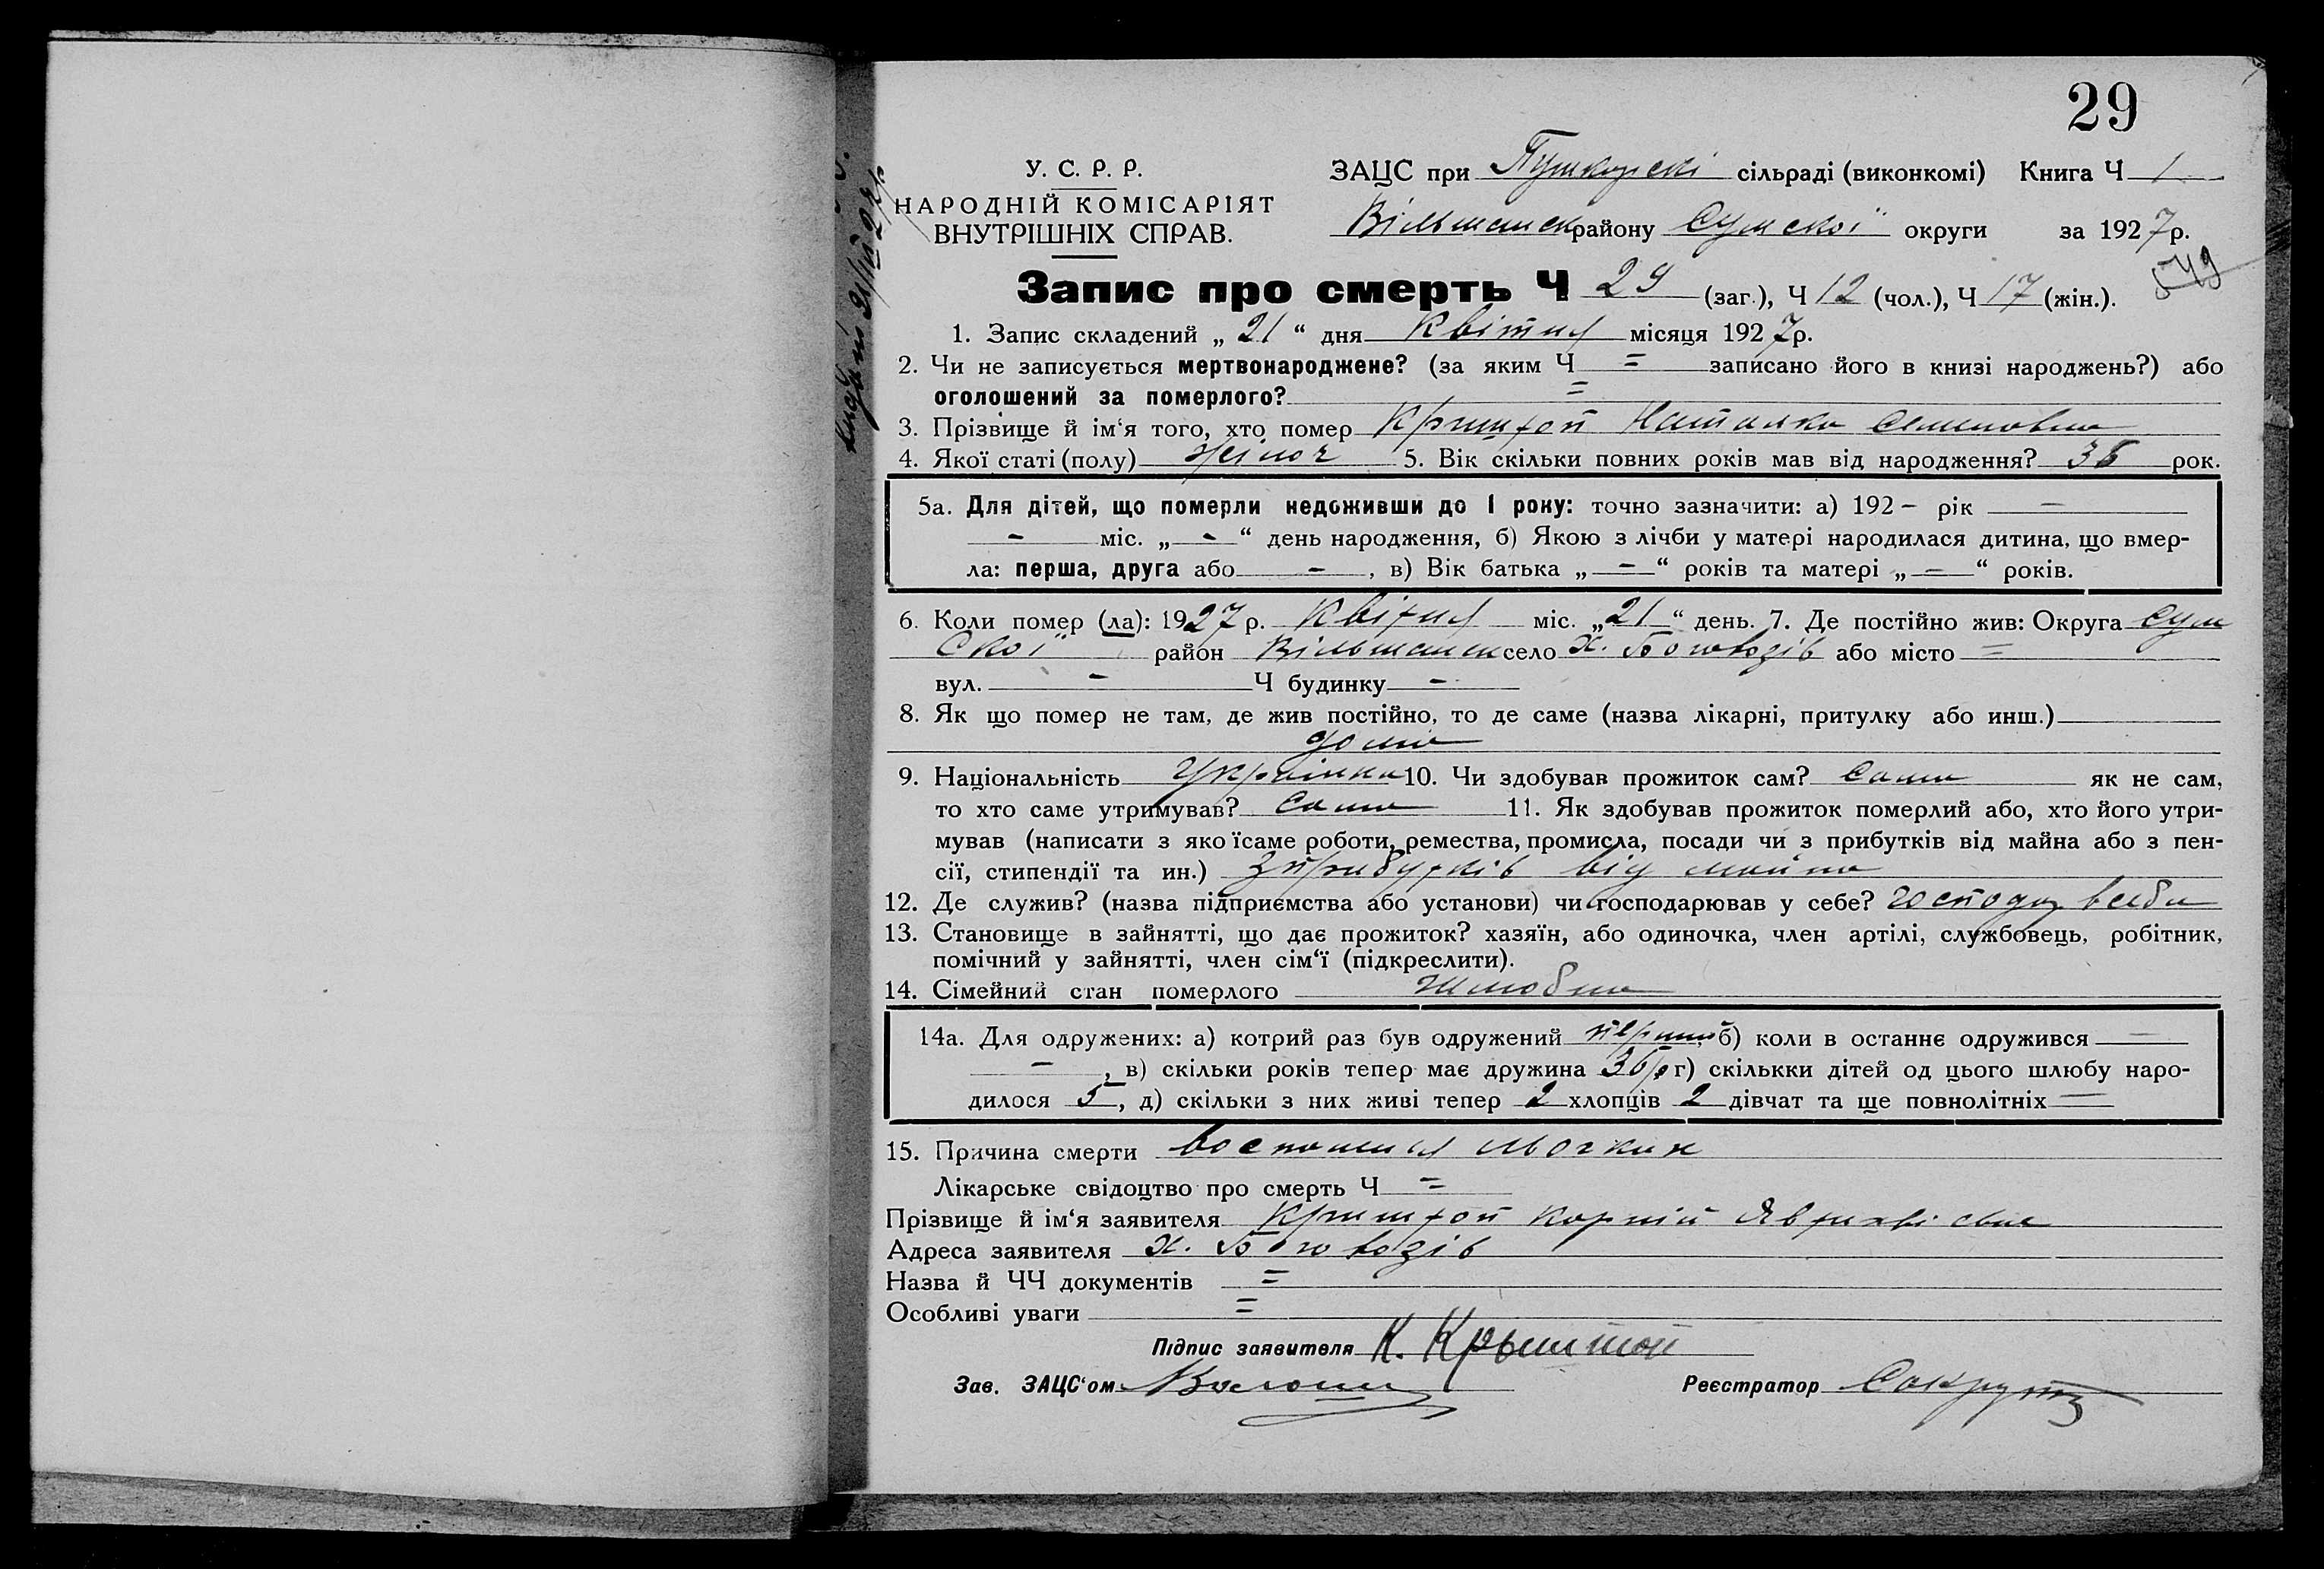 29
У. С. Р. Р.
НАРОДНІЙ КОМІСАРІЯТ
ВНУТРІШНІХ СПРАВ.
ЗАЦС при Пушкарскі сільраді (виконкомі) Книга Ч 1
Вільшанск району Сумскої округи за 1927р.
549
Запис про смерть Ч 29 (заг.), Ч 12 (чол.), Ч 17 (жін.).
1. Запис складений „ 21 “ дня Квітня місяця 1927р.
2. Чи не записується мертвонароджене? (за яким Ч = записано його в книзі народжень?) або
оголошений за померлого? =
3. Прізвище й ім‘я того, хто помер Криштоп Наталка Семеновна
4. Якої статі (полу) жіноч 5. Вік скільки повних років мав від народження? 36 рок.
5а. Для дітей, що померли недоживши до 1 року: точно зазначити: а) 192 – рік –
– міс. „ – “ день народження, б) Якою з лічби у матері народилася дитина, що вмер-
ла: перша, друга або – , в) Вік батька „ – “ років та матері „ – “ років.
6. Коли помер (ла): 1927 р. Квітня міс. „21“ день. 7. Де постійно жив: Округа Сум
скої район Вільшанск село Х. Боговозів або місто =
вул. – Ч будинку –
8. Як що помер не там, де жив постійно, то де саме (назва лікарні, притулку або инш.)
дома
9. Національність Українка 10. Чи здобував прожиток сам? Сама як не сам,
то хто саме утримував? Сама 11. Як здобував прожиток померлий або, хто його утри-
мував (написати з яко їсаме роботи, ремества, промисла, посади чи з прибутків від майна або з пен-
сії, стипендії та ин.) З прибутків від майна
12. Де служив? (назва підприємства або установи) чи господарював у себе? господар в себе
13. Становище в зайнятті, що дає прожиток? хазяїн, або одиночка, член артілі, службовець, робітник,
помічний у зайнятті, член сім‘ї (підкреслити).
14. Сімейний стан померлого Шлюбна
14а. Для одружених: а) котрий раз був одружений перший б) коли в останнє одружився –
– , в) скільки років тепер має дружина 36 р г) скількки дітей од цього шлюбу наро-
дилося 5, д) скільки з них живі тепер 2 хлопців 2 дівчат та ще повнолітніх –
15. Причина смерти воспаления льогких
Лікарське свідоцтво про смерть Ч =
Прізвище й ім‘я заявителя Криштоп Корній
Адреса заявителя Х. Боговозів
Назва й ЧЧ документів =
Особливі уваги =
Підпис заявителя К. Крыштоп
Зав. ЗАЦС‘ом Реєстратор